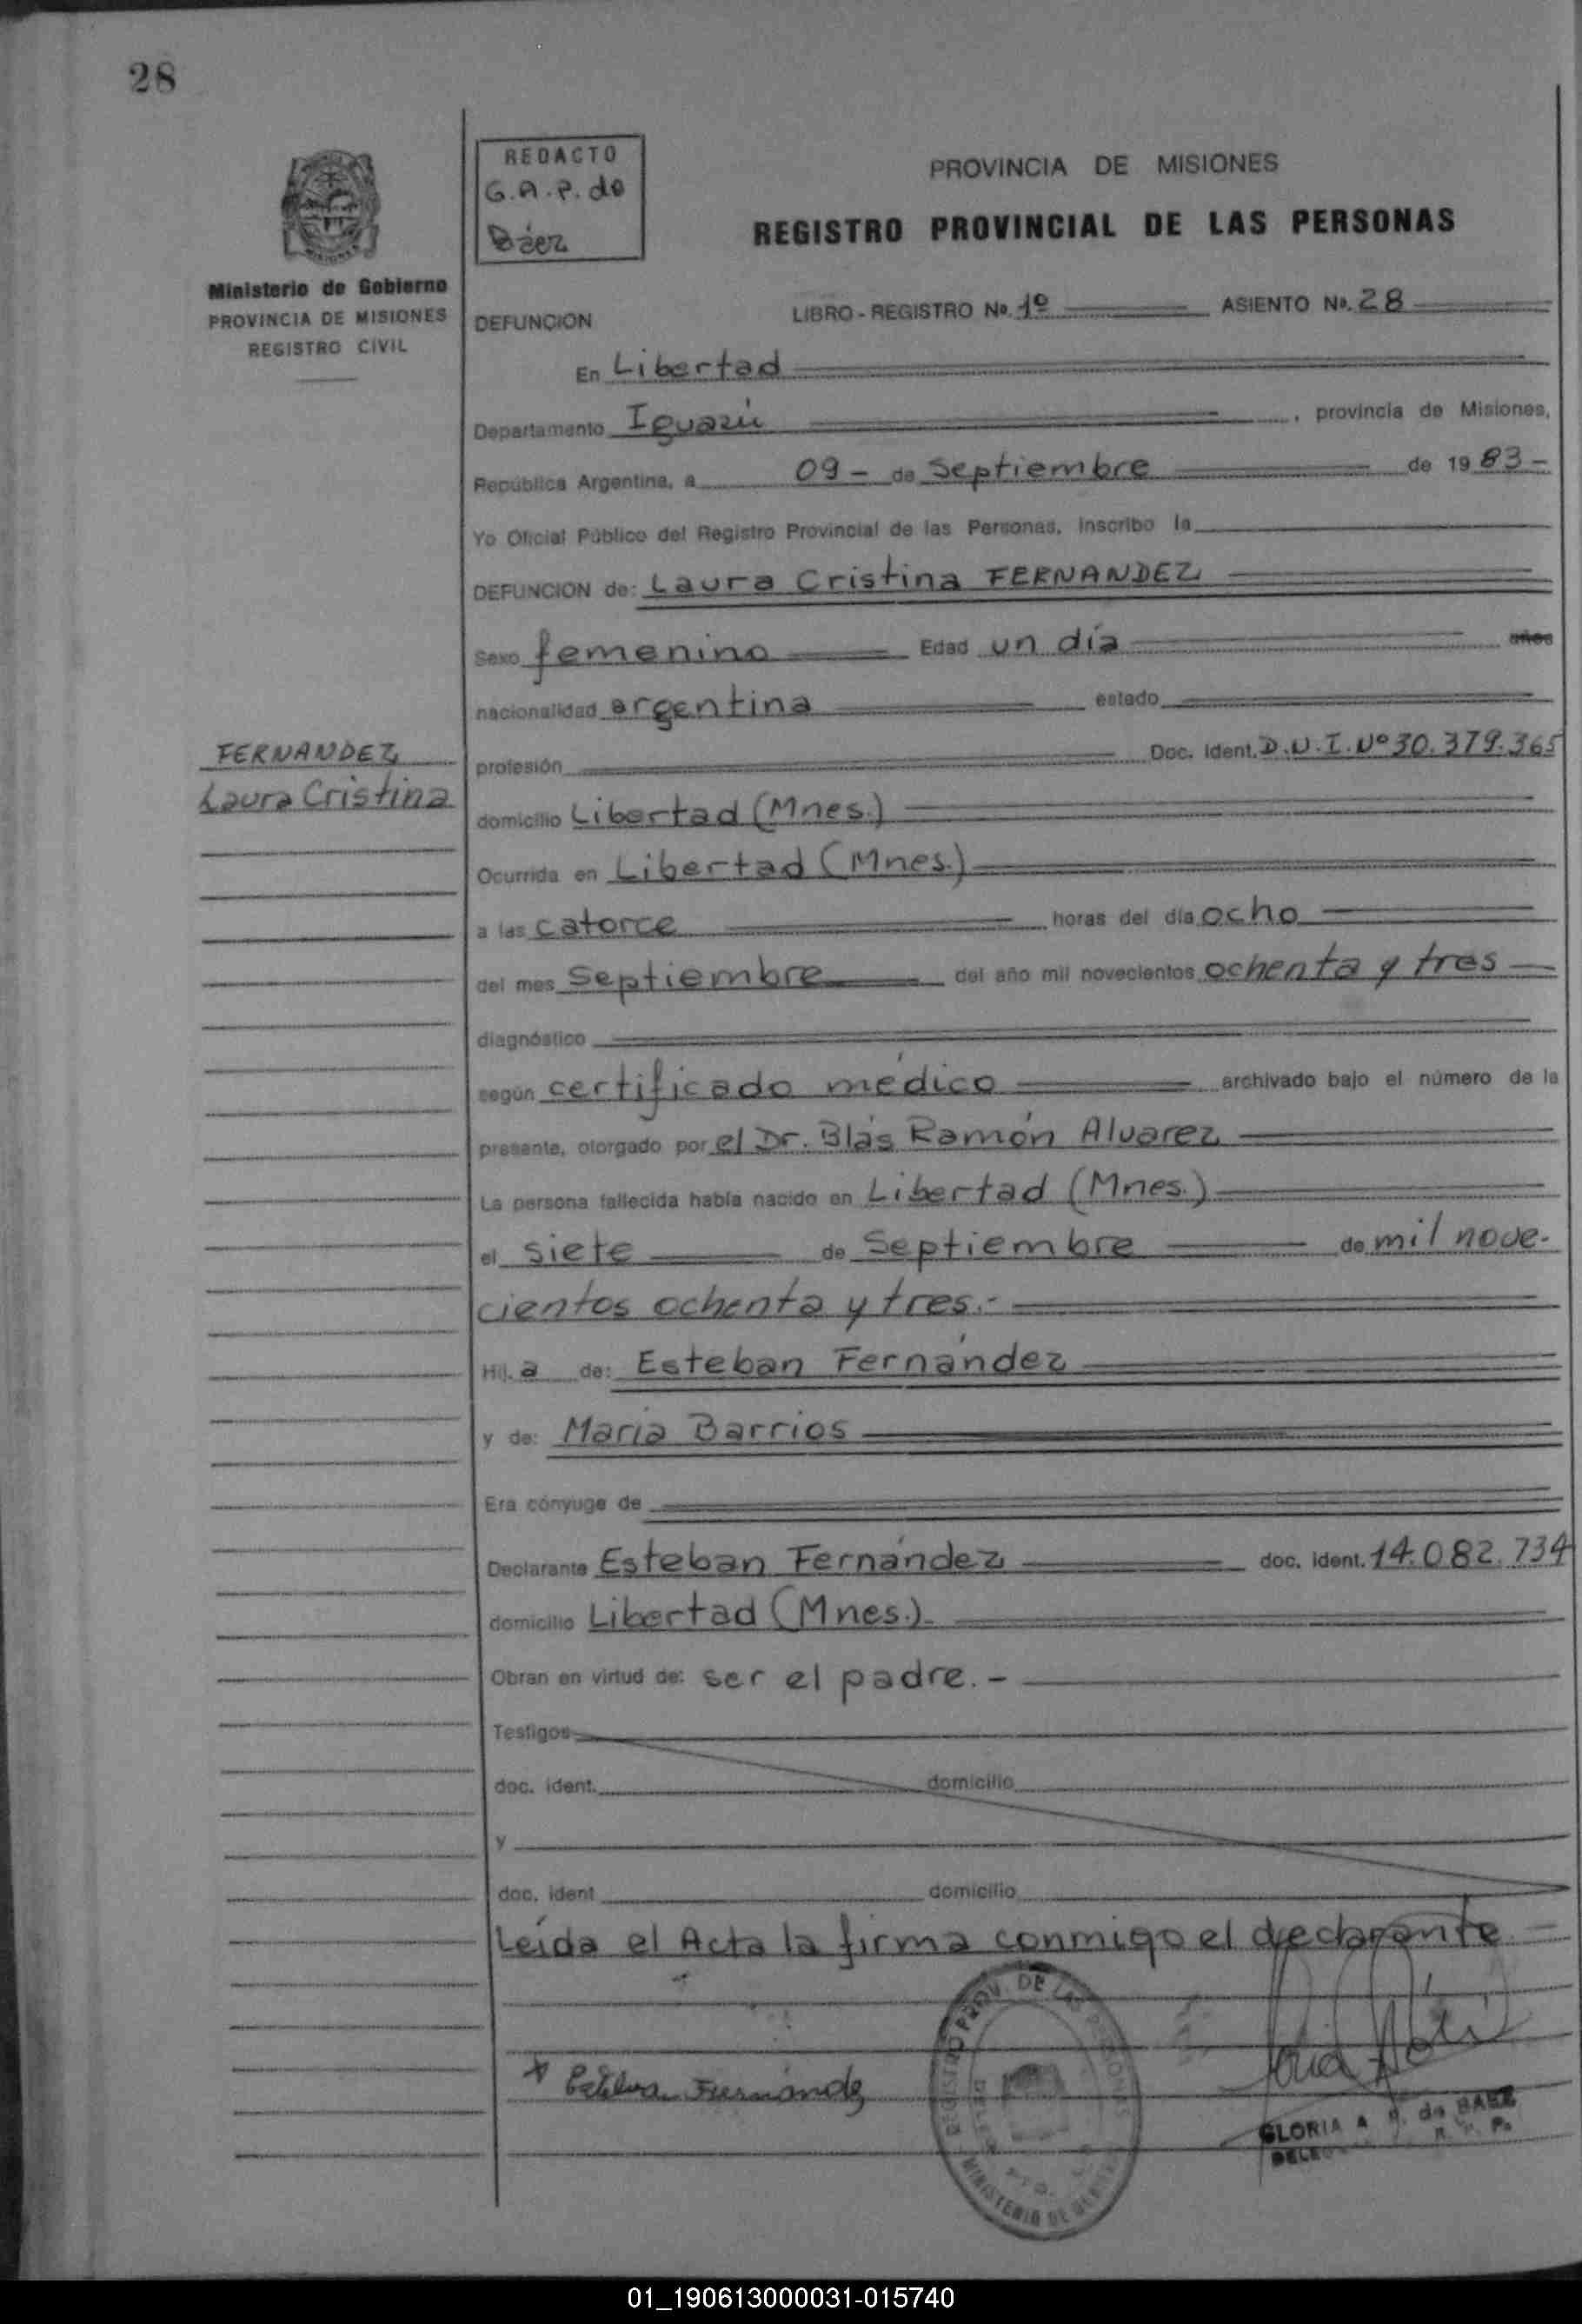 28
REDACTO
G.A.P. de
Báez
Ministerio de Gobierno
PROVINCIA DE MISIONES
REGISTRO CIVIL
PROVINCIA DE MISIONES
REGISTRO PROVINCIAL DE LAS PERSONAS
DEFUNCION LIBRO - REGISTRO No. 1º ASIENTO No. 28
En Libertad
Departamento Iguazú, provincia de Misiones,
República Argentina, a 09 - de Septiembre de 1983 -
Yo Oficial Público del Registro Provincial de las Personas, inscribo la
DEFUNCION de: Laura Cristina FERNANDEZ
Sexo femenino Edad un día años
nacionalidad argentina estado
FERNANDEZ
Laura Cristina
profesión Doc. Ident. D.N.I. Nº 30.379.365
domicilio Libertad (Mnes.)
Ocurrida en Libertad (Mnes.)
a las catorce horas del día ocho
del mes Septiembre del año mil novecientos ochenta y tres
diagnóstico
según certificado médico archivado bajo el número de la
presente, otorgado por el Dr. Blás Ramón Alvarez
La persona fallecida había nacido en Libertad (Mnes.)
el siete de Septiembre de mil nove-
cientos ochenta y tres.-
Hij.a de: Esteban Fernández
y de: María Barrios
Era cónyuge de
Declarante Esteban Fernández doc. ident. 14.082.734
domicilio Libertad (Mnes.).
Obran en virtud de: ser el padre. -
Testigos
doc. ident. domicilio
y
doc. ident domicilio
Leída el Acta la firma conmigo el declarante
REGISTRO PROV. DE LAS PERSONAS
MINISTERIO DE
Fernandez
GLORIA A P. de BAEZ
01_190613000031-015740